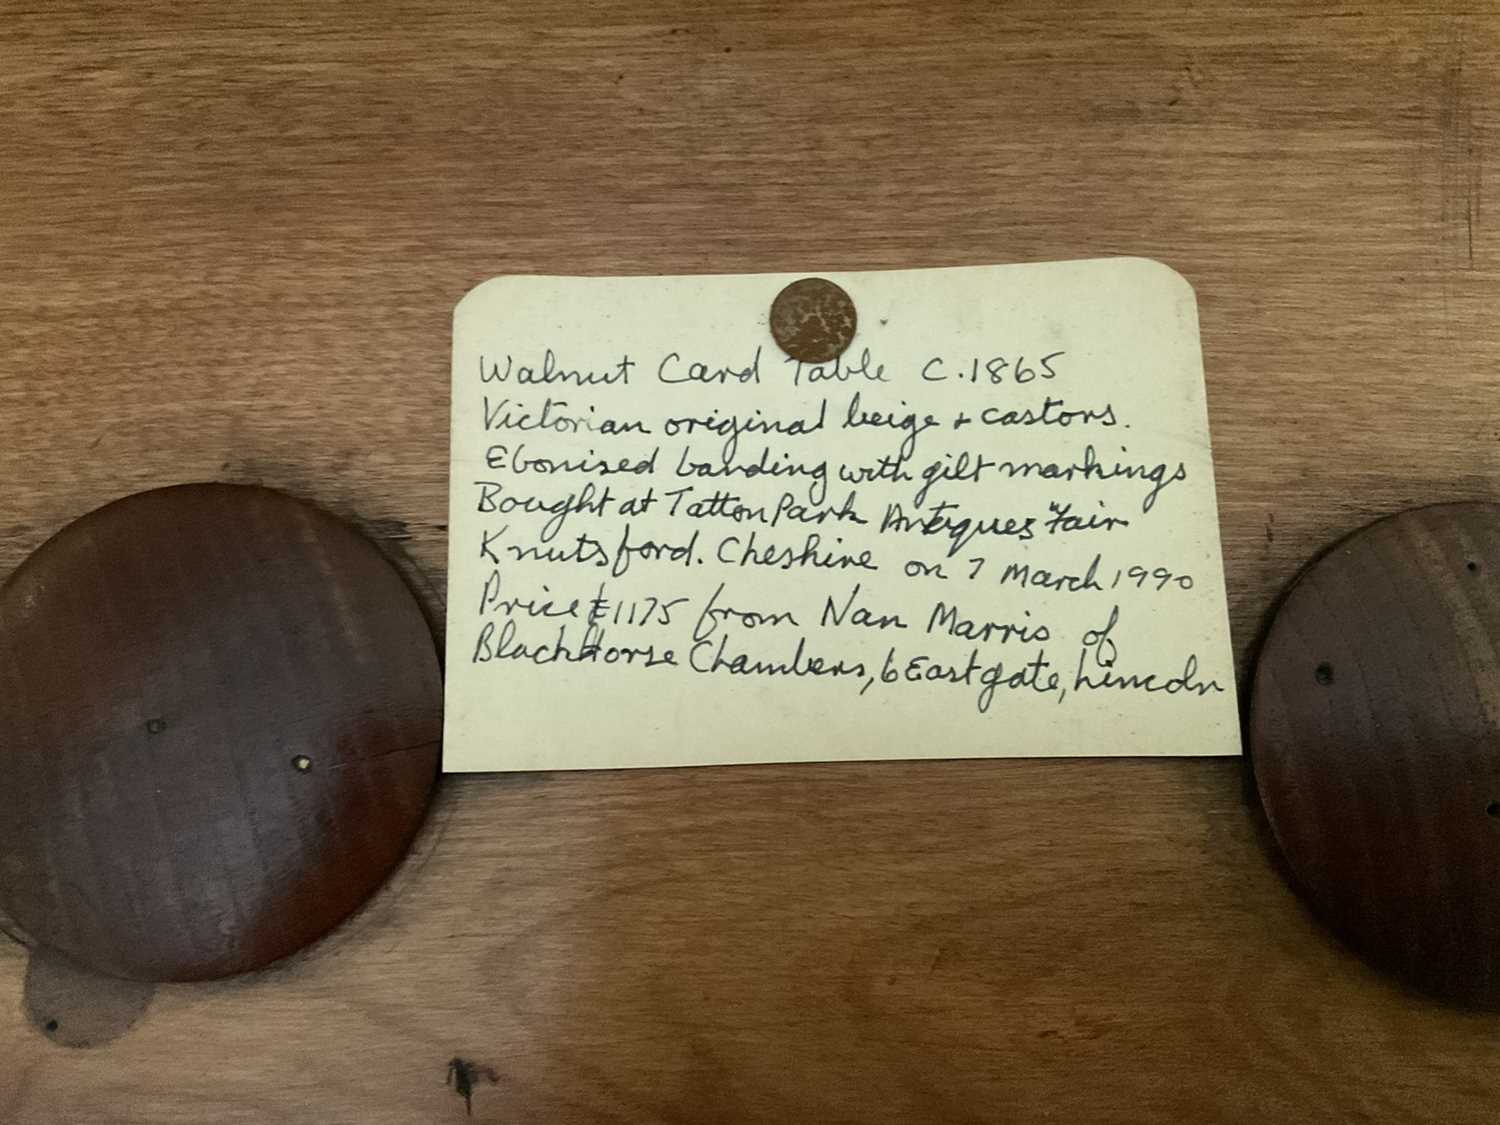 Walnut Card Table C.1865
Victorian original beige + castors.
Ebonised banding with gilt markings
Bought at Tatton Park Antiques Fair
Knutsford. Cheshire on 7 March 1990
Price £1175 from Nan Marris of
BlackHorse Chambers, 6 Eastgate, Lincoln